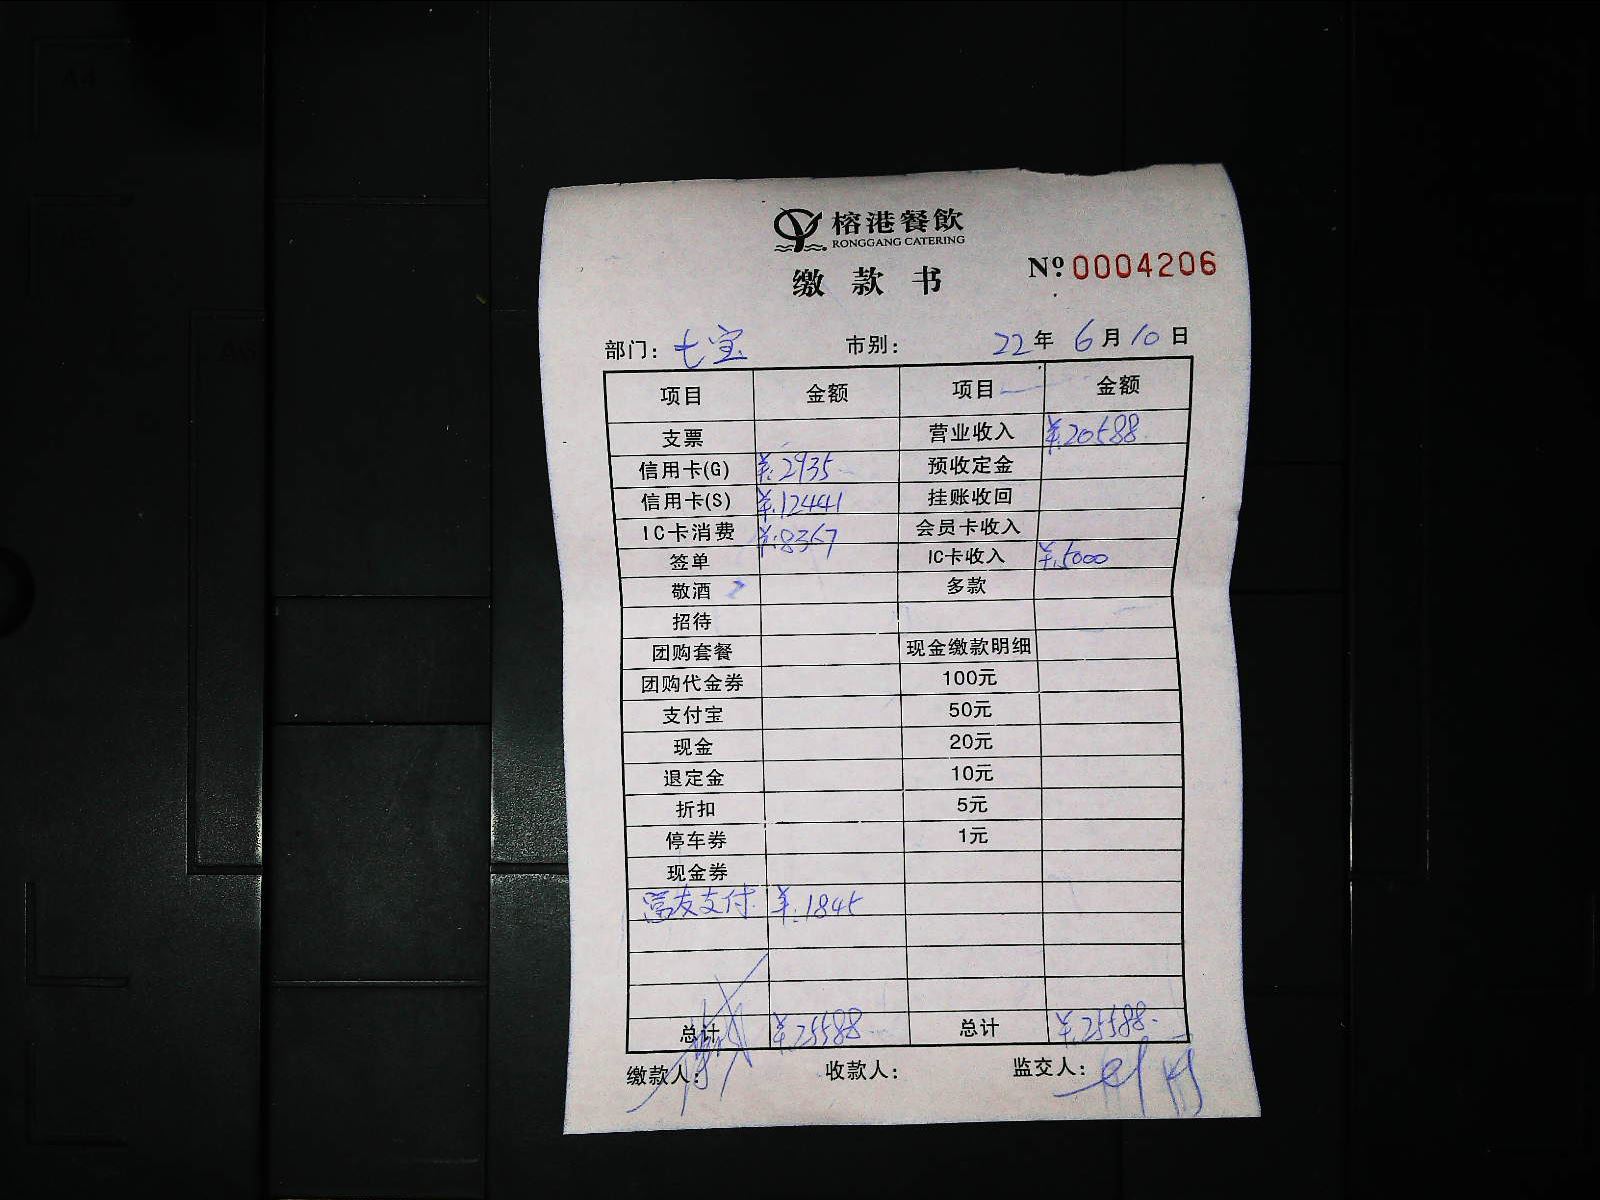 榕港餐飲
RONGGANG CATERING
缴款书 Nº 0004206
部门: 七宝 市别: 22年 6月10日
项目 金额 项目 金额
支票 营业收入 ¥.20588
信用卡(G) ¥.2935 预收定金
信用卡(S) ¥.12441 挂账收回
IC卡消费 ¥.8367 会员卡收入
签单 IC卡收入 ¥.5000
敬酒 多款
招待
团购套餐 现金缴款明细
团购代金券 100元
支付宝 50元
现金 20元
退定金 10元
折扣 5元
停车券 1元
现金券
支付 ¥.1845
总计 ¥.25588 总计 ¥.25588
缴款人: 收款人: 监交人: